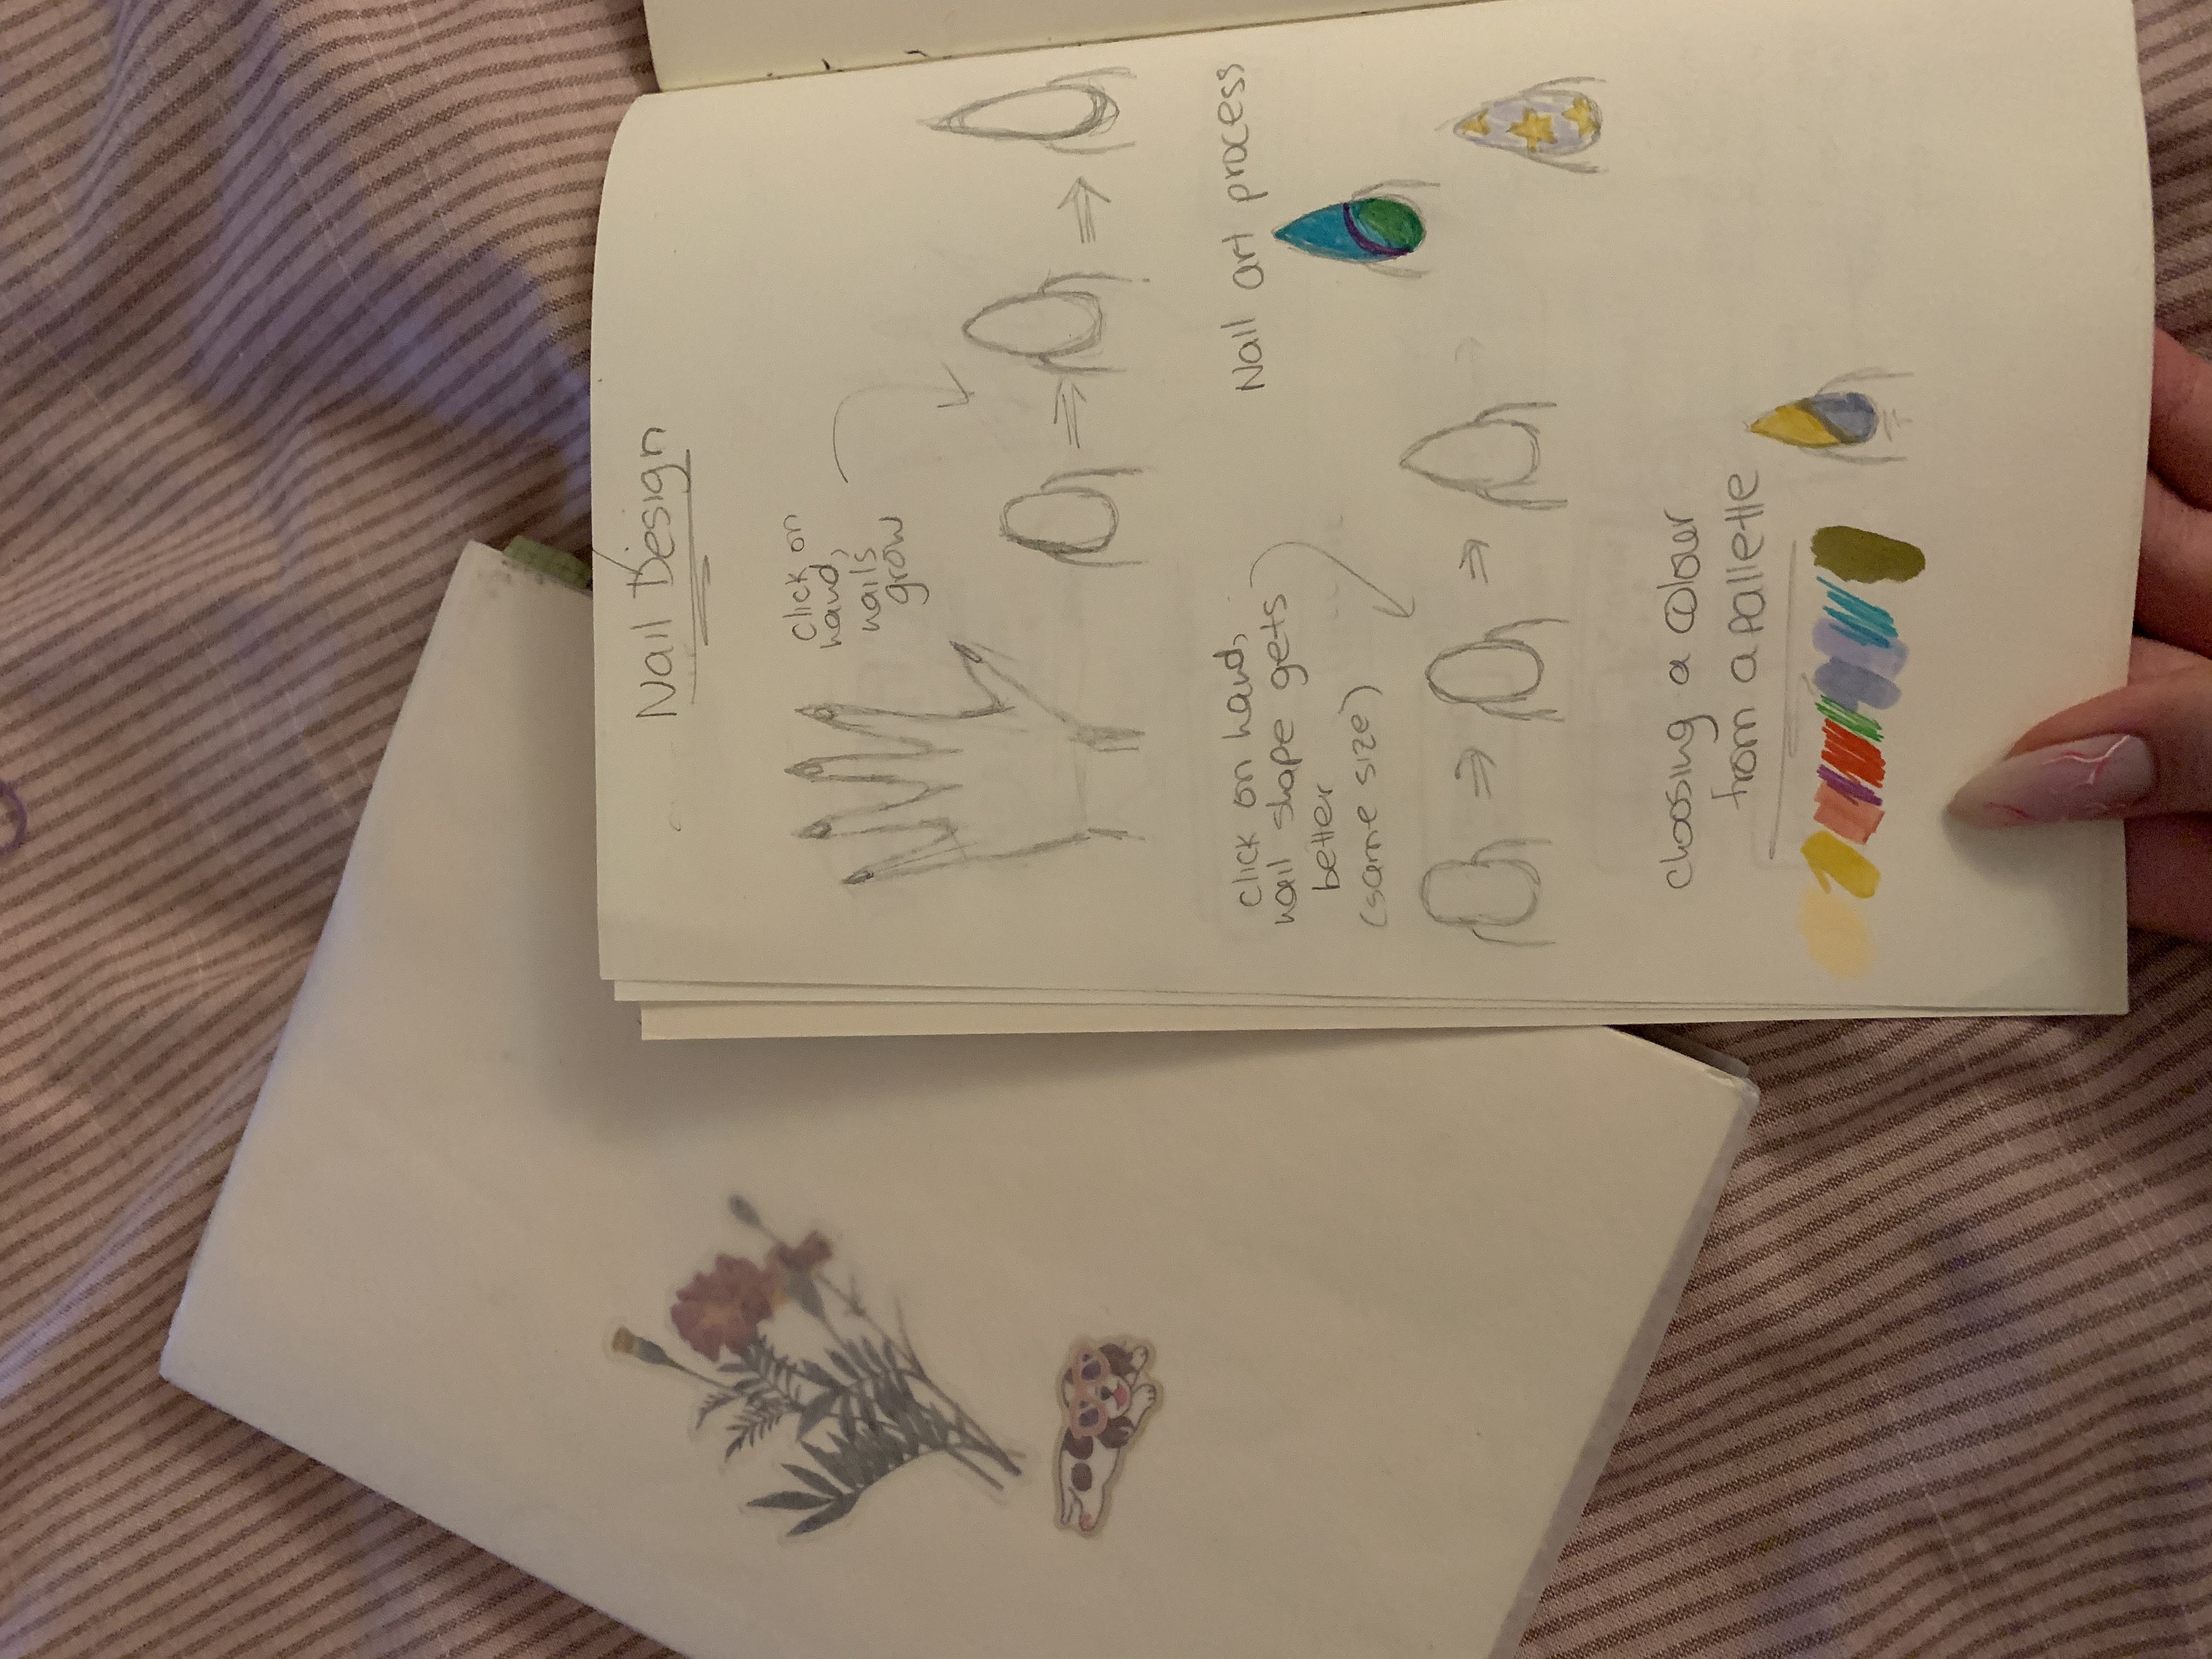 Nail Design
click on
hand,
nails
grow
click on hand,
nail shape gets
better
(same size)
Nail art process
choosing a colour
from a pallette